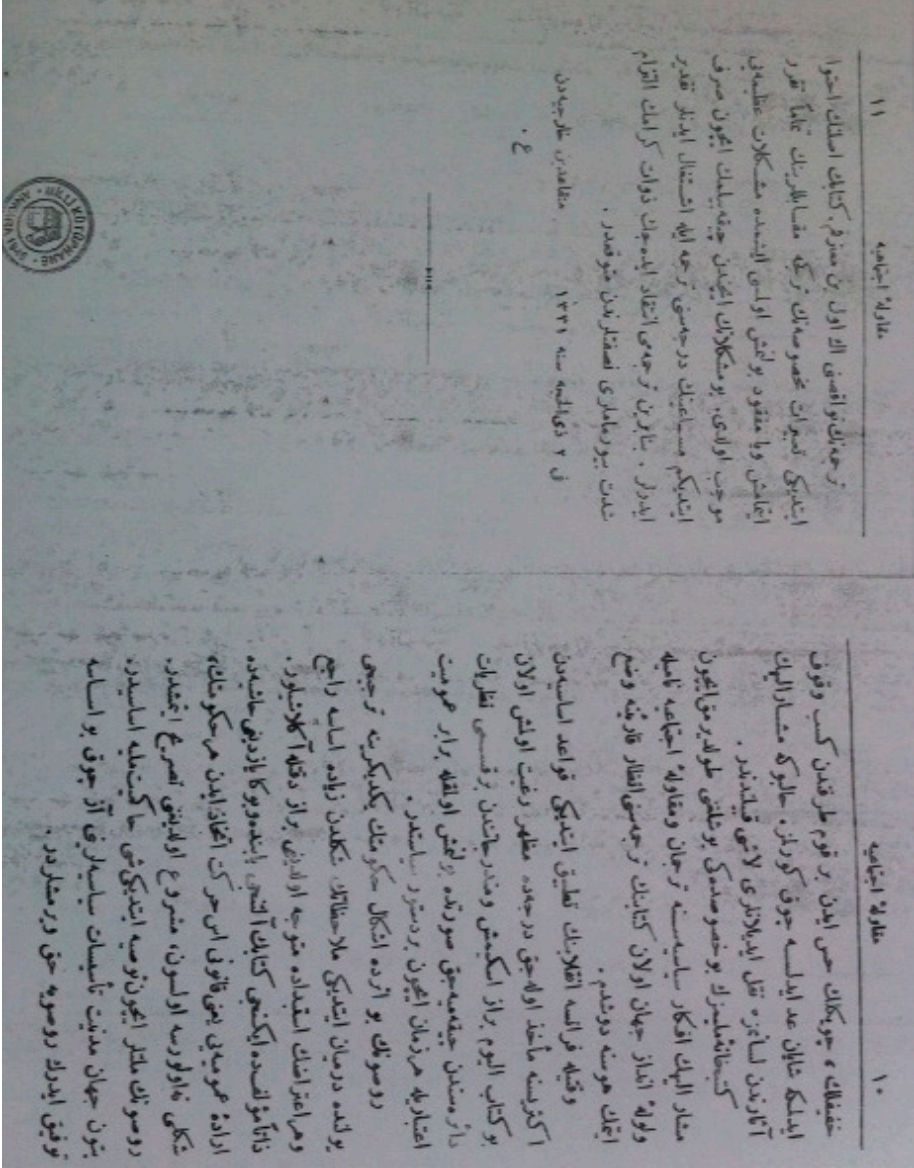 ١٠
مقاولهٔ اجتماعیه
خفیفلك، چوبكلك حس ایدن بر قوم طرفندن كسب وقوف
ایدلمكه شایان عد ایدلسه چوق كورلمز. حالبوكه مشارالیهك
آثارندن لسانمزه نقل ایدیلانلری لاشی قبیلندندر.
كتبخانهٔ ملیمزك بوخصوصده‌كی بوشلغنی طولدیرمق ایچون
مشار الیهك افكار سیاسیه‌سنه ترجمان ومقاولهٔ اجتماعیه نامیله
ولوله انداز جهان اولان كتابنك ترجمه‌سنی انظار قارئینه وضع
ایتمك هوسنه دوشدم.
وقتیله فرانسه انقلابنك تطبیق ایتدیكی قواعد اساسیه‌دن
اكثریسنه مأخذ اوله‌جق درجه‌ده مظهر رغبت اولمش اولان
بو كتاب الیوم براز اسكیمش ومندرجاتندن بر قسمی نظریات
دائره‌سندن چیقه‌میه‌جق صورتده بولنمش اولمقله برابر عمومیت
اعتباریله هر زمان ایچون بر دستور سیاستدر.
روسونك بو اثرده اشكال حكومتك یكدیكرینه ترجیحی
یولنده درمیان ایتدیكی ملاحظاتك شكلدن زیاده اساسه راجع
وهر اعتراضنك استبداده متوجه اولدیغی براز دقتله آكلاشیلور.
ذاتاً مؤلف‌ده ایكنجی كتابك آلتنجی بابنده وبوكا یازدیغی حاشیه‌ده
ارادهٔ عمومیه‌یی یعنی قانونی اس حركت اتخاذ ایدن هر حكومتك،
شكلی نه اولورسه اولسون، مشروع اولدیغنی تصریح ایتمشدر.
روسونك ملتلر ایچون توصیه ایتدیكی شی حاكمیت ملیه اساسیدر.
بتون جهان مدنیت تأسیسات سیاسیه‌لرینی آز چوق بو اساسه
توفیق ایدرك روسویه حق ویرمشلردر.
١١
مقاولهٔ اجتماعیه
ترجمه‌نك نواقصنی اك اول بن معترفم. كتابك اصلنك احتوا
ایتدیكی تعبیرات مخصوصه‌نك تركجه مقابللرینك تماماً تقرر
ایتمامش ویا مفقود بولنمش اولمسی ایشمده مشكلات عظیمه‌یی
موجب اولدی. بو مشكلاتك ایچندن چیقه‌بیلمك ایچون صرف
ایتدیكم مساعینك درجه‌سنی ترجمه ایله اشتغال ایدنلر تقدیر
ایدرلر. بناءً علیه ترجمه‌یی انتقاد ایده‌جك ذوات كرامك التزام
شدت بیورماملری نصفتلرندن متوقعدر.
فی ٢ ذی الحجه سنه ١٣٣١
متقاعدین خارجیه‌دن
ع.
MİLLİ KÜTÜPHANE · ANKARA